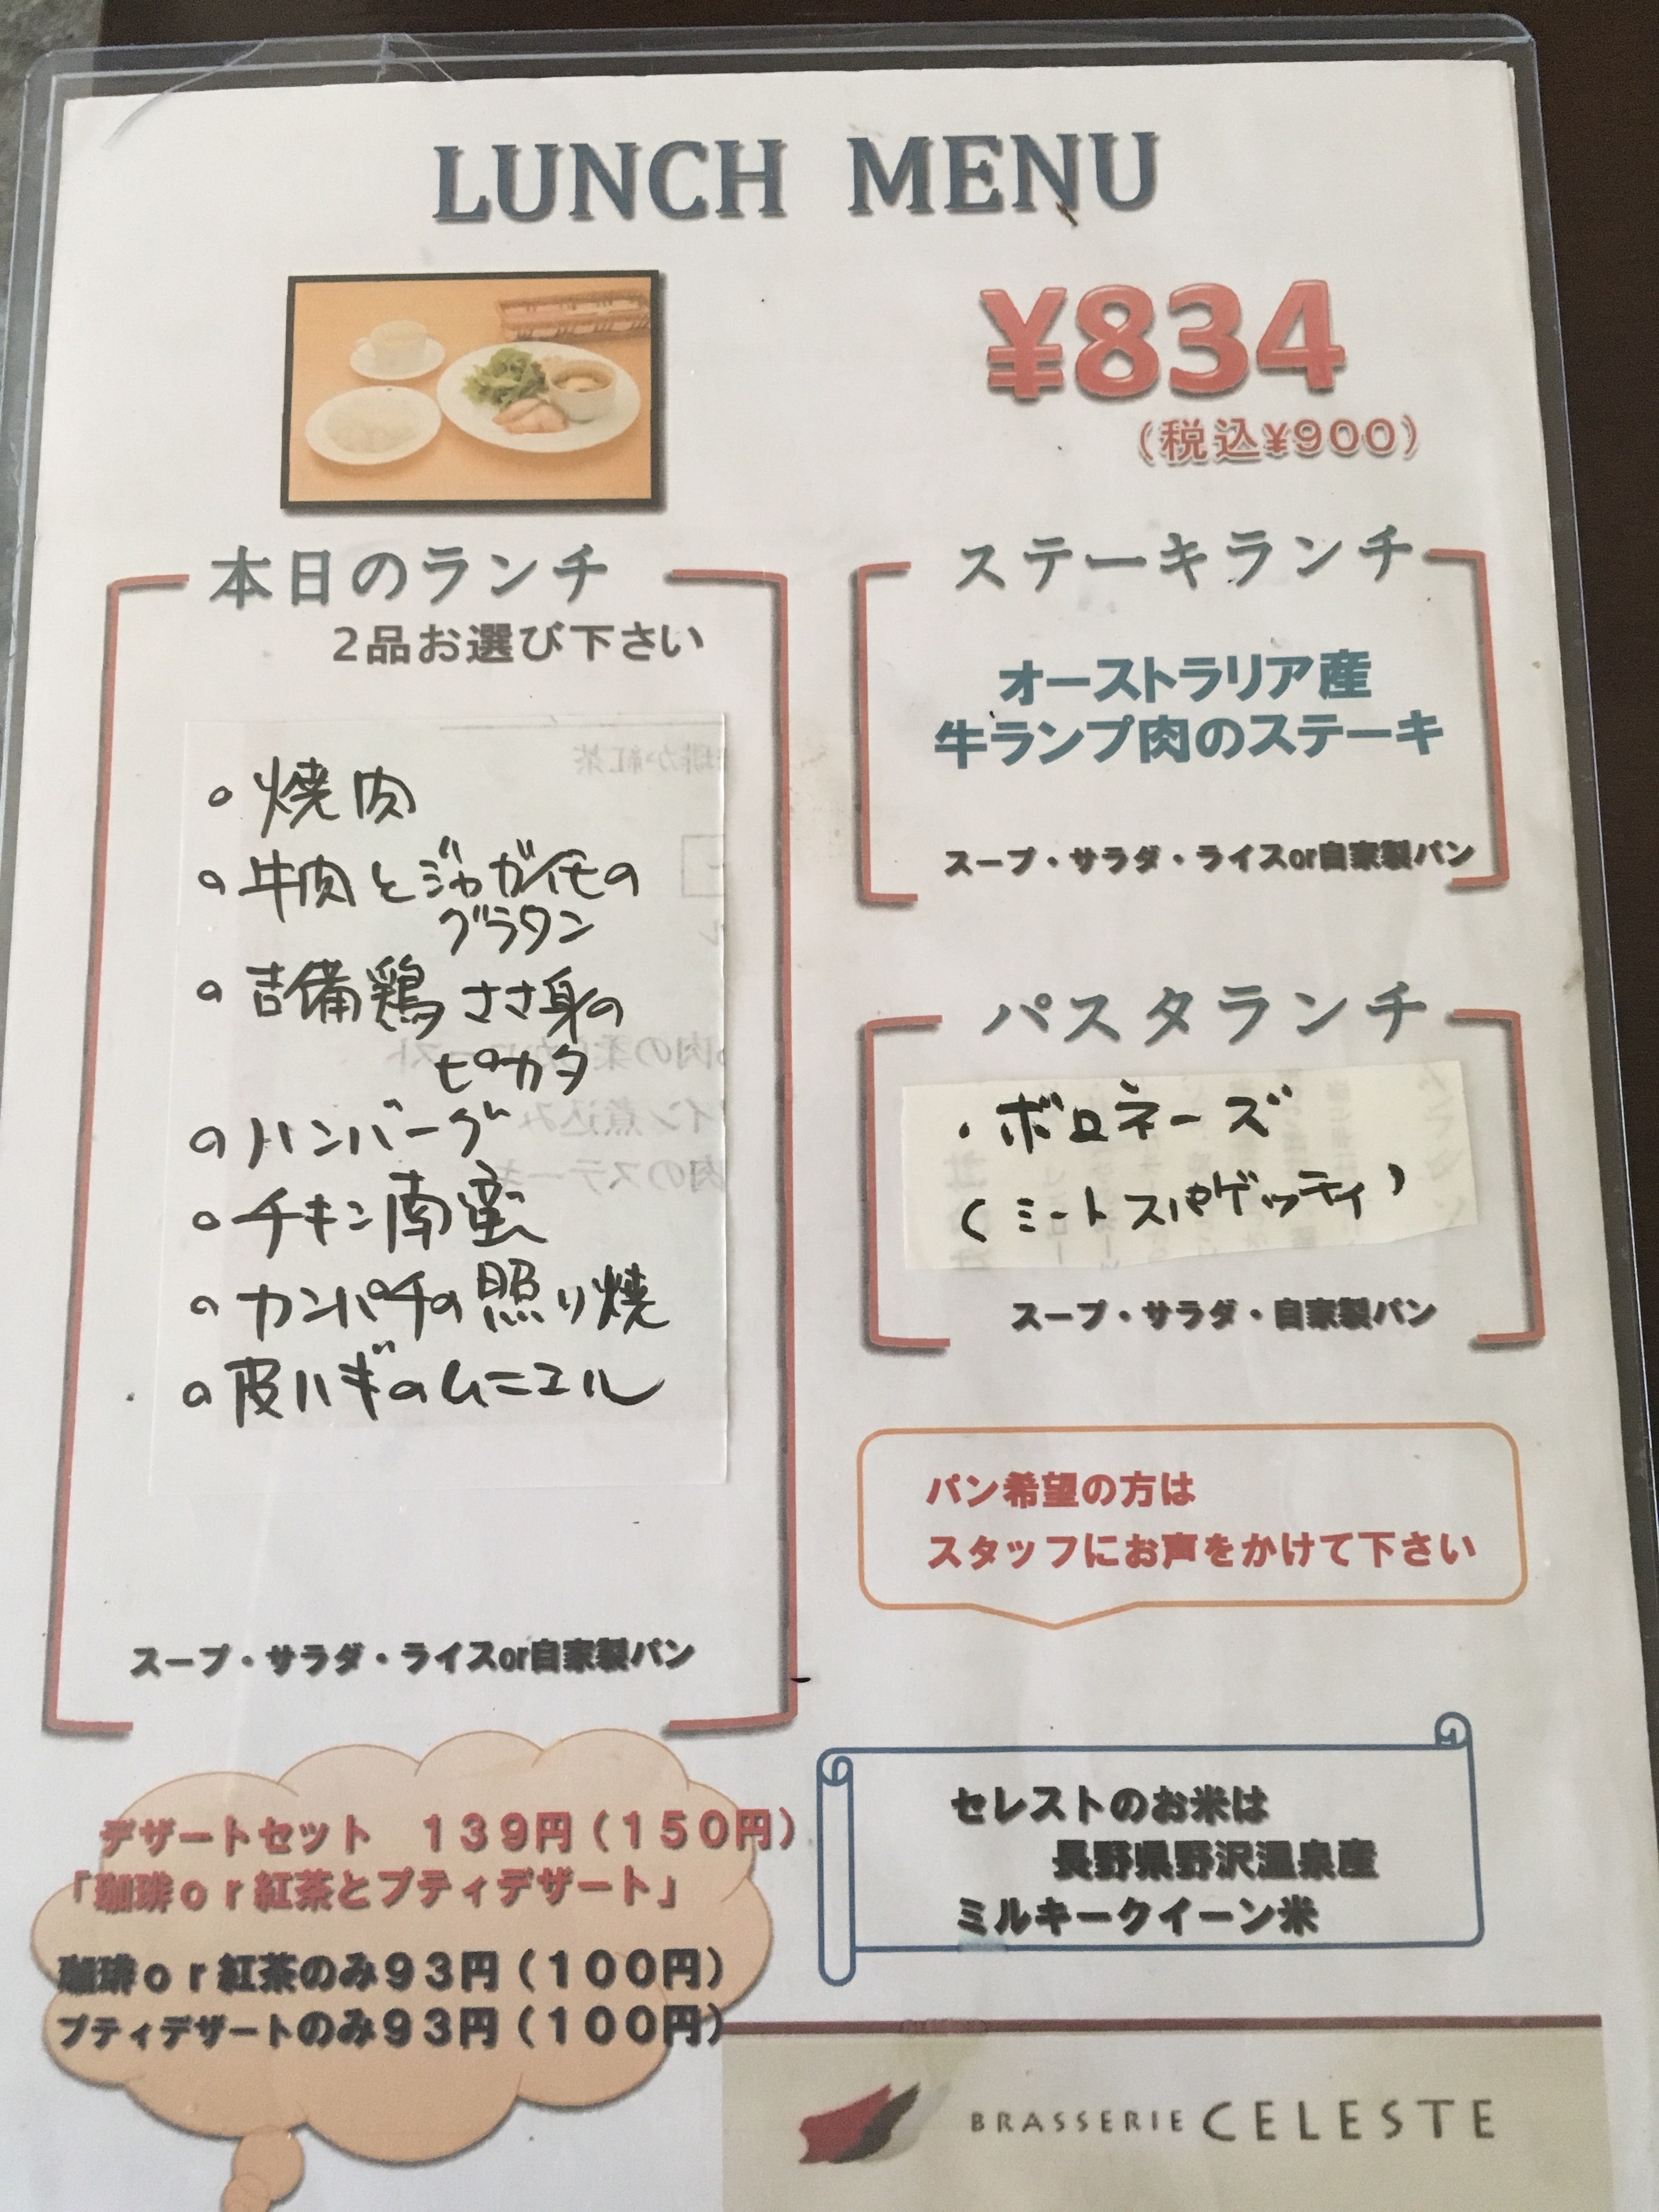 LUNCH MENU
¥834
(税込¥900)
本日のランチ
2品お選び下さい
焼肉
牛肉とジャガイモの
グラタン
吉備鶏ささ身の
ピカタ
ハンバーグ
チキン南蛮
カンパチの照り焼
皮ハギのムニエル
スープ・サラダ・ライスor自家製パン
ステーキランチ
オーストラリア産
牛ランプ肉のステーキ
スープ・サラダ・ライスor自家製パン
パスタランチ
・ボロネーズ
(ミートスパゲッティ)
スープ・サラダ・自家製パン
パン希望の方は
スタッフにお声をかけて下さい
デザートセット 139円(150円)
「珈琲or紅茶とプティデザート」
珈琲or紅茶のみ93円(100円)
プティデザートのみ93円(100円)
セレストのお米は
長野県野沢温泉産
ミルキークイーン米
BRASSERIE CELESTE